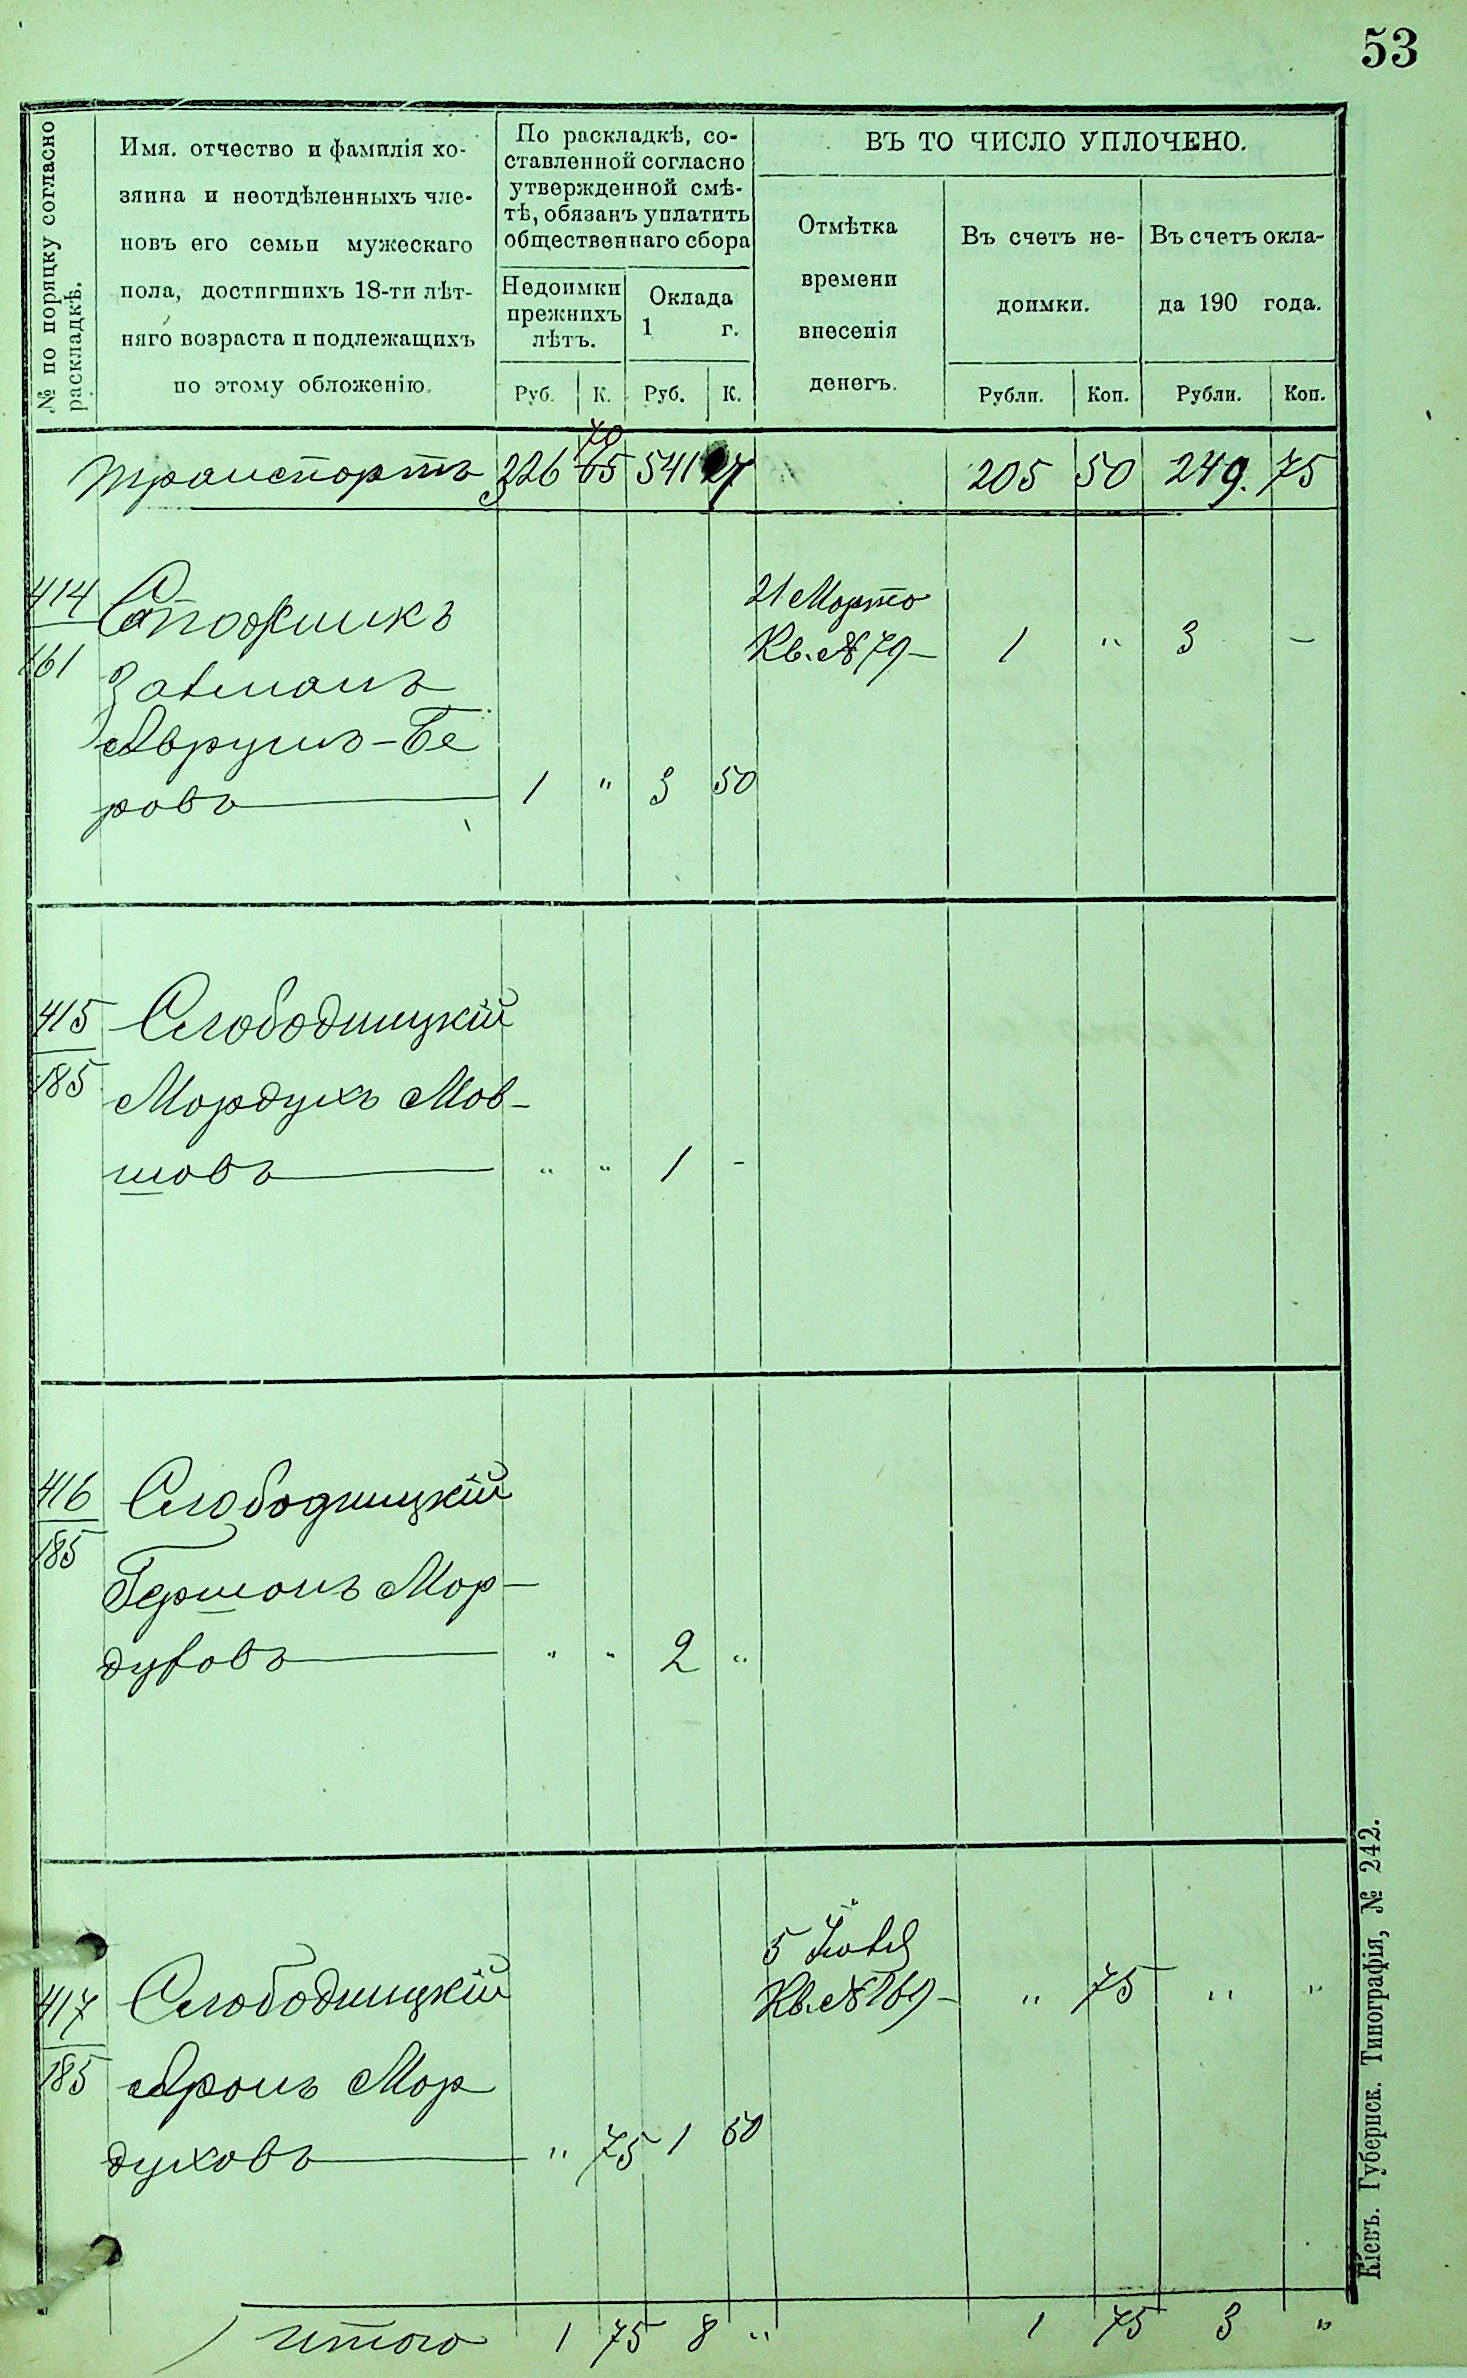 53
№ по порядку согласно
раскладкѣ.
Имя, отчество и фамилія хо-
зяина и неотдѣленныхъ чле-
новъ его семьи мужескаго
пола, достигшихъ 18-ти лѣт-
няго возраста и подлежащихъ
по этому обложенію.
По раскладкѣ, со-
ставленной согласно
утвержденной смѣ-
тѣ, обязанъ уплатить
общественнаго сбора
Недоимки
прежнихъ
лѣтъ.
Оклада
1 г.
Руб. К. Руб. К.
ВЪ ТО ЧИСЛО УПЛОЧЕНО.
Отмѣтка
времени
внесенія
денегъ.
Въ счетъ не-
доимки.
Въ счетъ окла-
да 190 года.
Рубли. Коп. Рубли. Коп.
70
транспортъ 326 65 541 27 205 50 249. 75
414
161
Зальманъ
Аврумъ-Бе
ровъ 1 " 3 50
21 Марта
Кв. № 79 — 1 " 3 —
415
185
Слободицкій
Мордухъ Мов-
шовъ " " 1 -
416
185
Слободицкій
Гершонъ Мор-
духовъ " " 2 "
417
185
Слободицкій
Аронъ Мор
духовъ " 75 1 50
5 Іюля
Кв. № 169 — " 75 " "
Итого 1 75 8 " 1 75 3 "
Кіевъ. Губернск. Типографія, № 242.